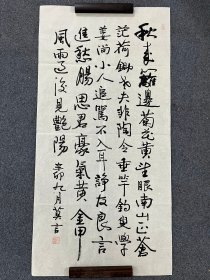 秋来篱边菊花黄坐眼南山正苍
茫荷锄老夫非陶令垂竿钓叟学
姜尚小人追骂不入耳诤友良言
进愁肠思君豪气黄金甲
风雨过后见艳阳 辛卯九月莫言